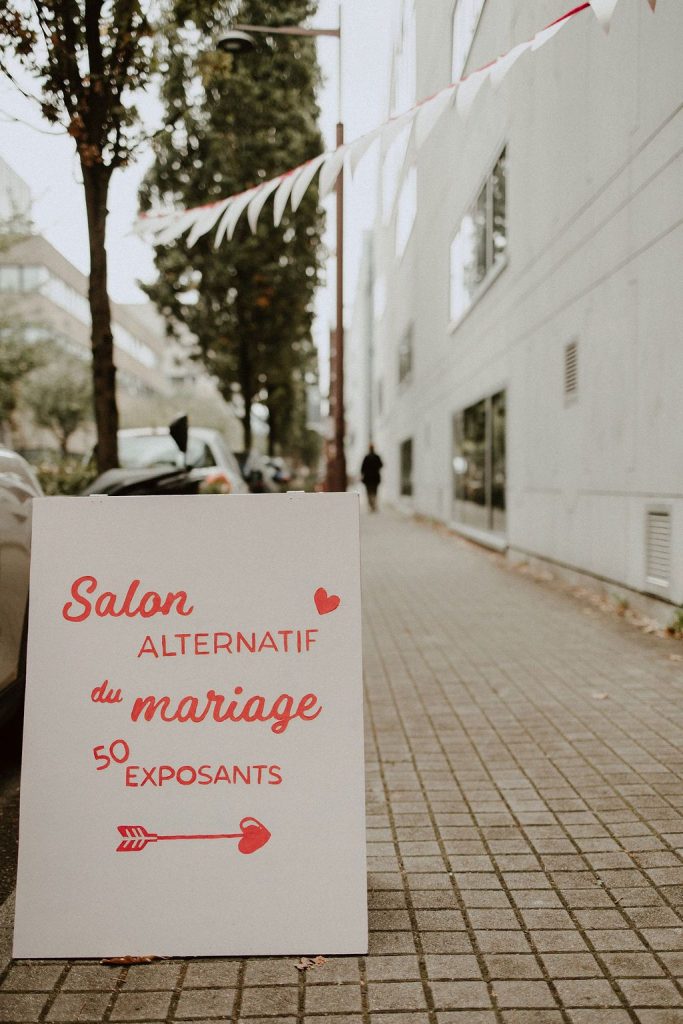 Salon
ALTERNATIF
du mariage
50 EXPOSANTS